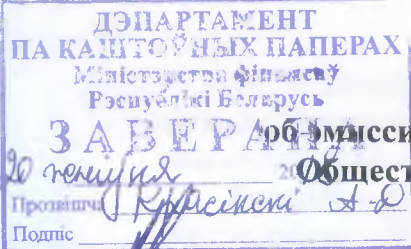 ДЭПАРТАМЕНТ
ПА КАШТОЎНЫХ ПАПЕРАХ
Міністэрства фінансаў
Рэспублікі Беларусь
ЗАВЕРАНА
об эмисси
20 20 Общест
Прозвішча Красінскі А.
Подпіс